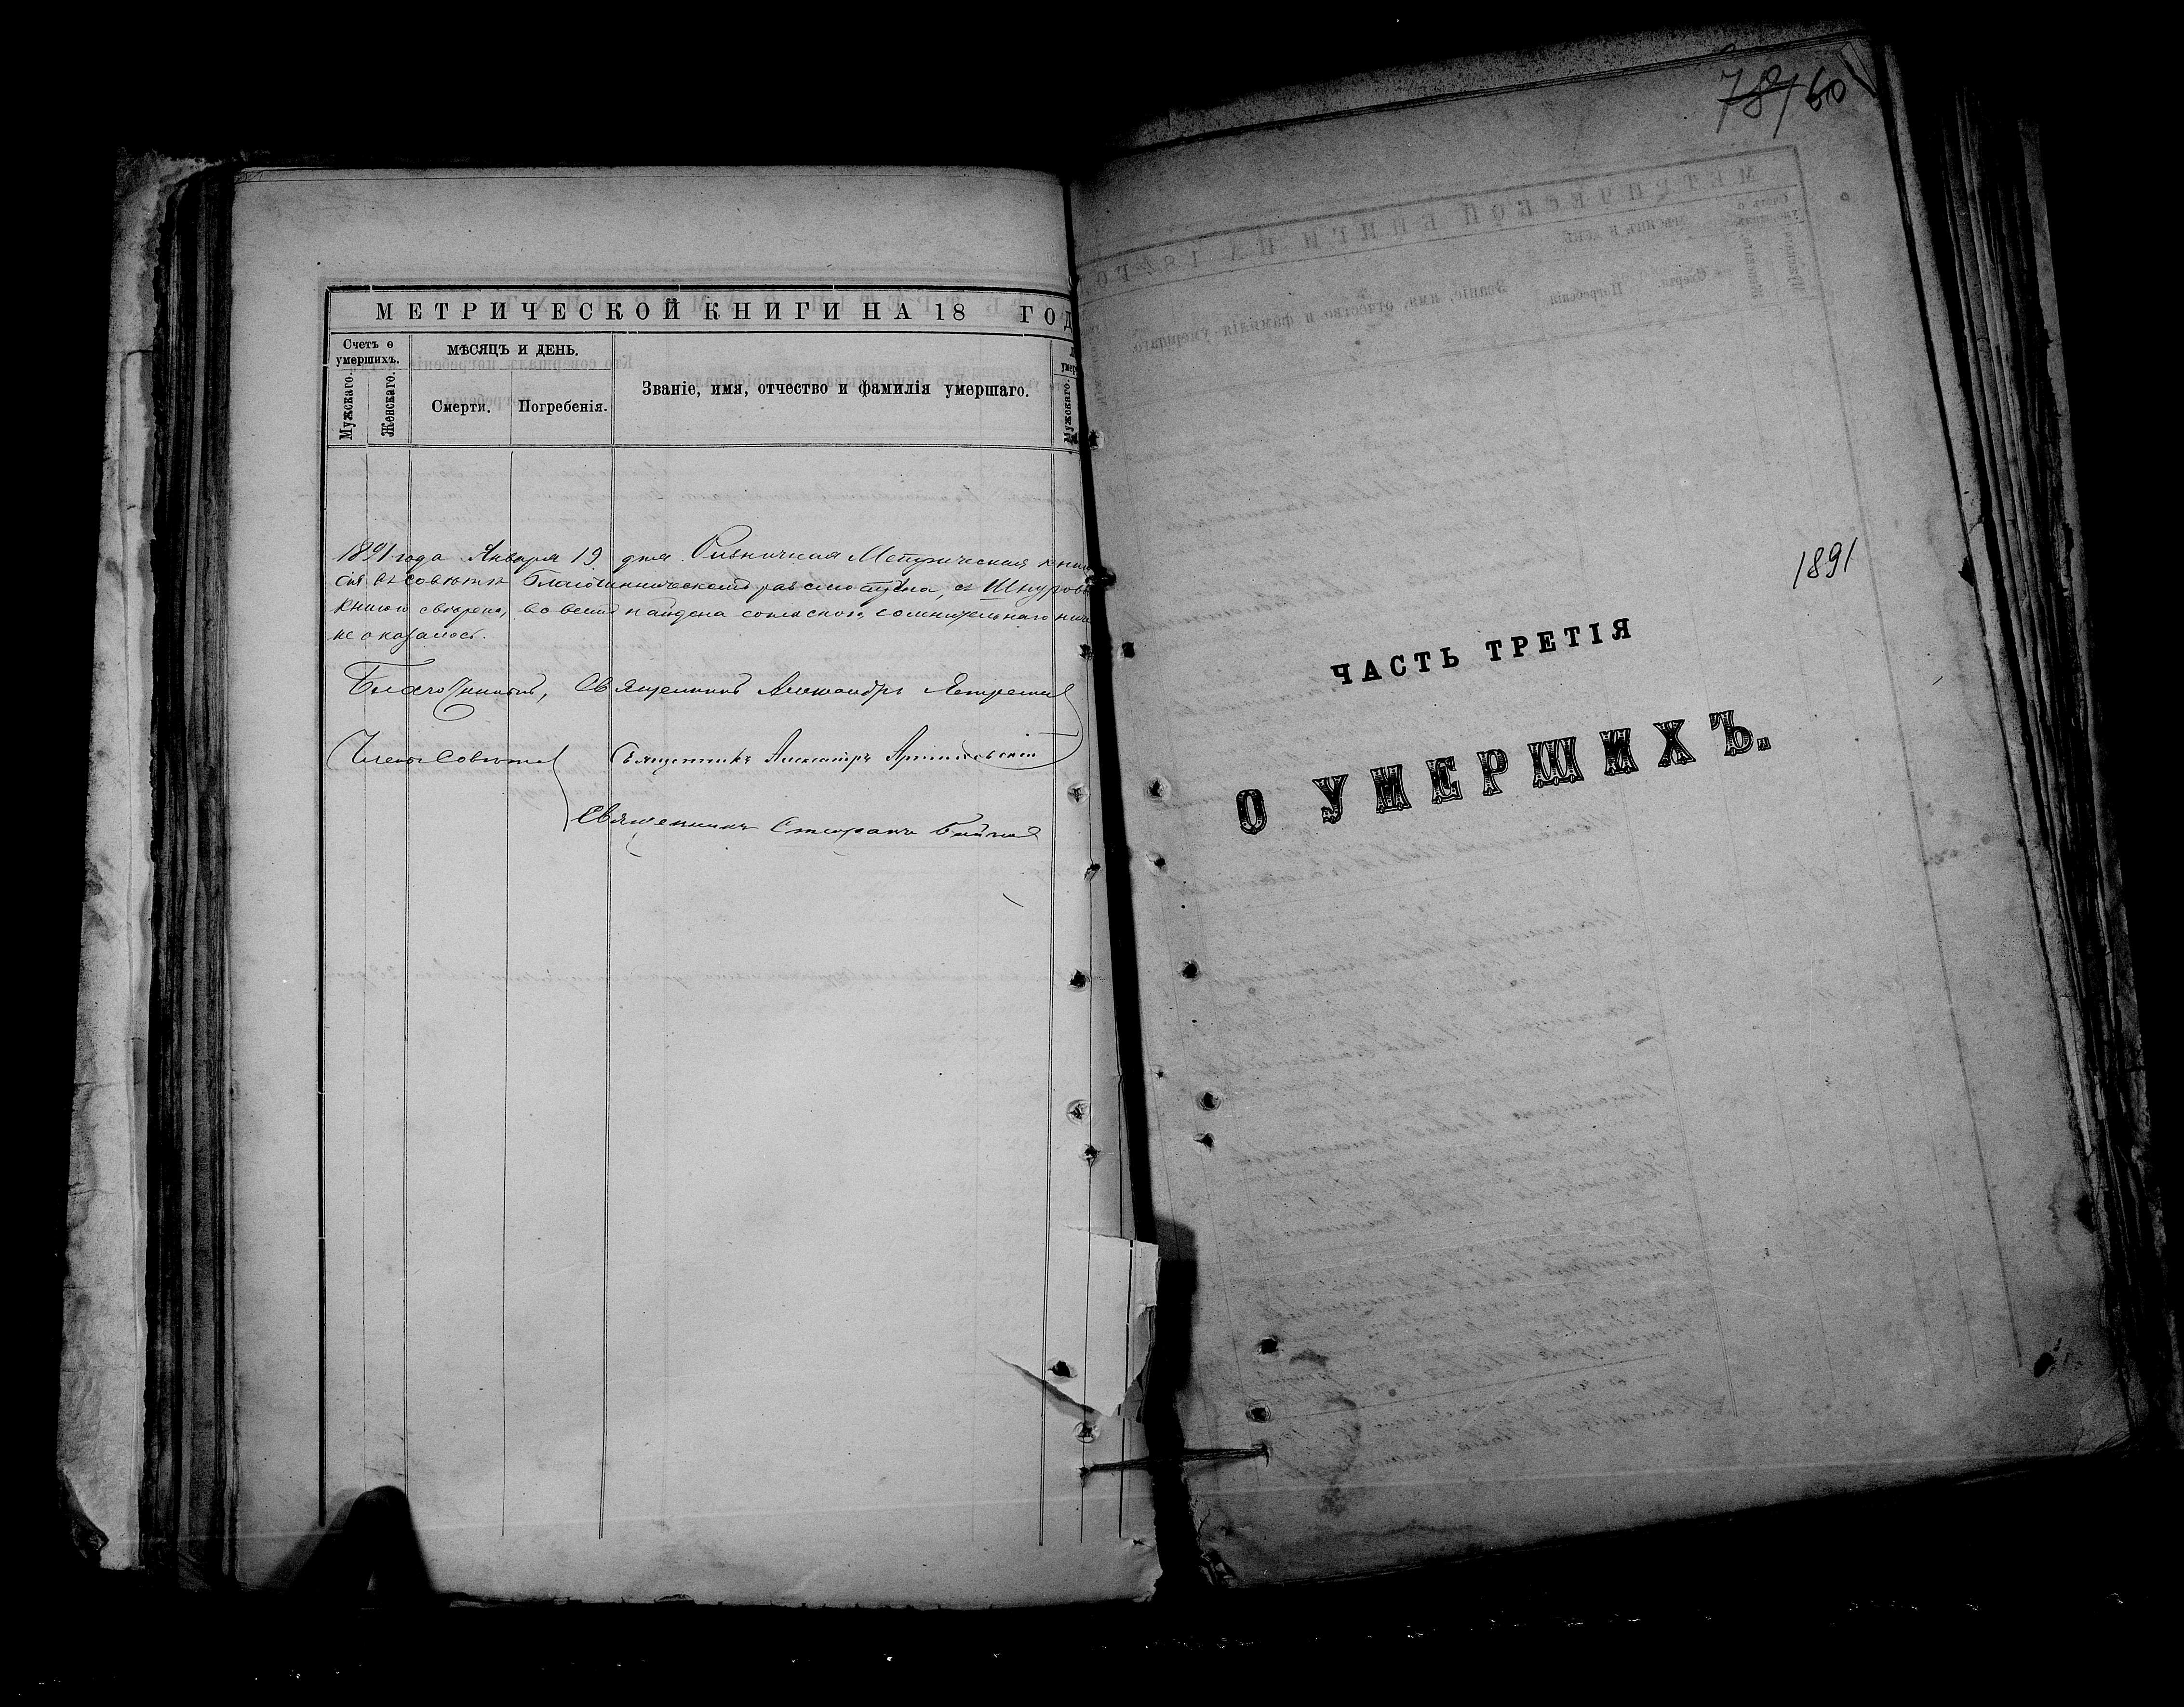 МЕТРИЧЕСКОЙ КНИГИ НА 18 ГОД
Счетъ о умершихъ.
МѢСЯЦЪ И ДЕНЬ.
Званіе, имя, отчество и фамилія умершаго.
Мужскаго.
Женскаго.
Смерти.
Погребенія.
Мужскаго.
1891 года Января 19 дня. Ризничная Метрическая кни
сія въ совѣтѣ Благочинническомъ разсмотрена, съ Шнуров
книгою сверена, во всемъ найдена согласною, сомнительнаго ниче
не оказалось.
Благочинный, Священникъ Александръ
Члены Совѣта Священникъ Александръ
Священникъ Стефанъ
78/60
1891
ЧАСТЬ ТРЕТІЯ
О УМЕРШИХЪ.